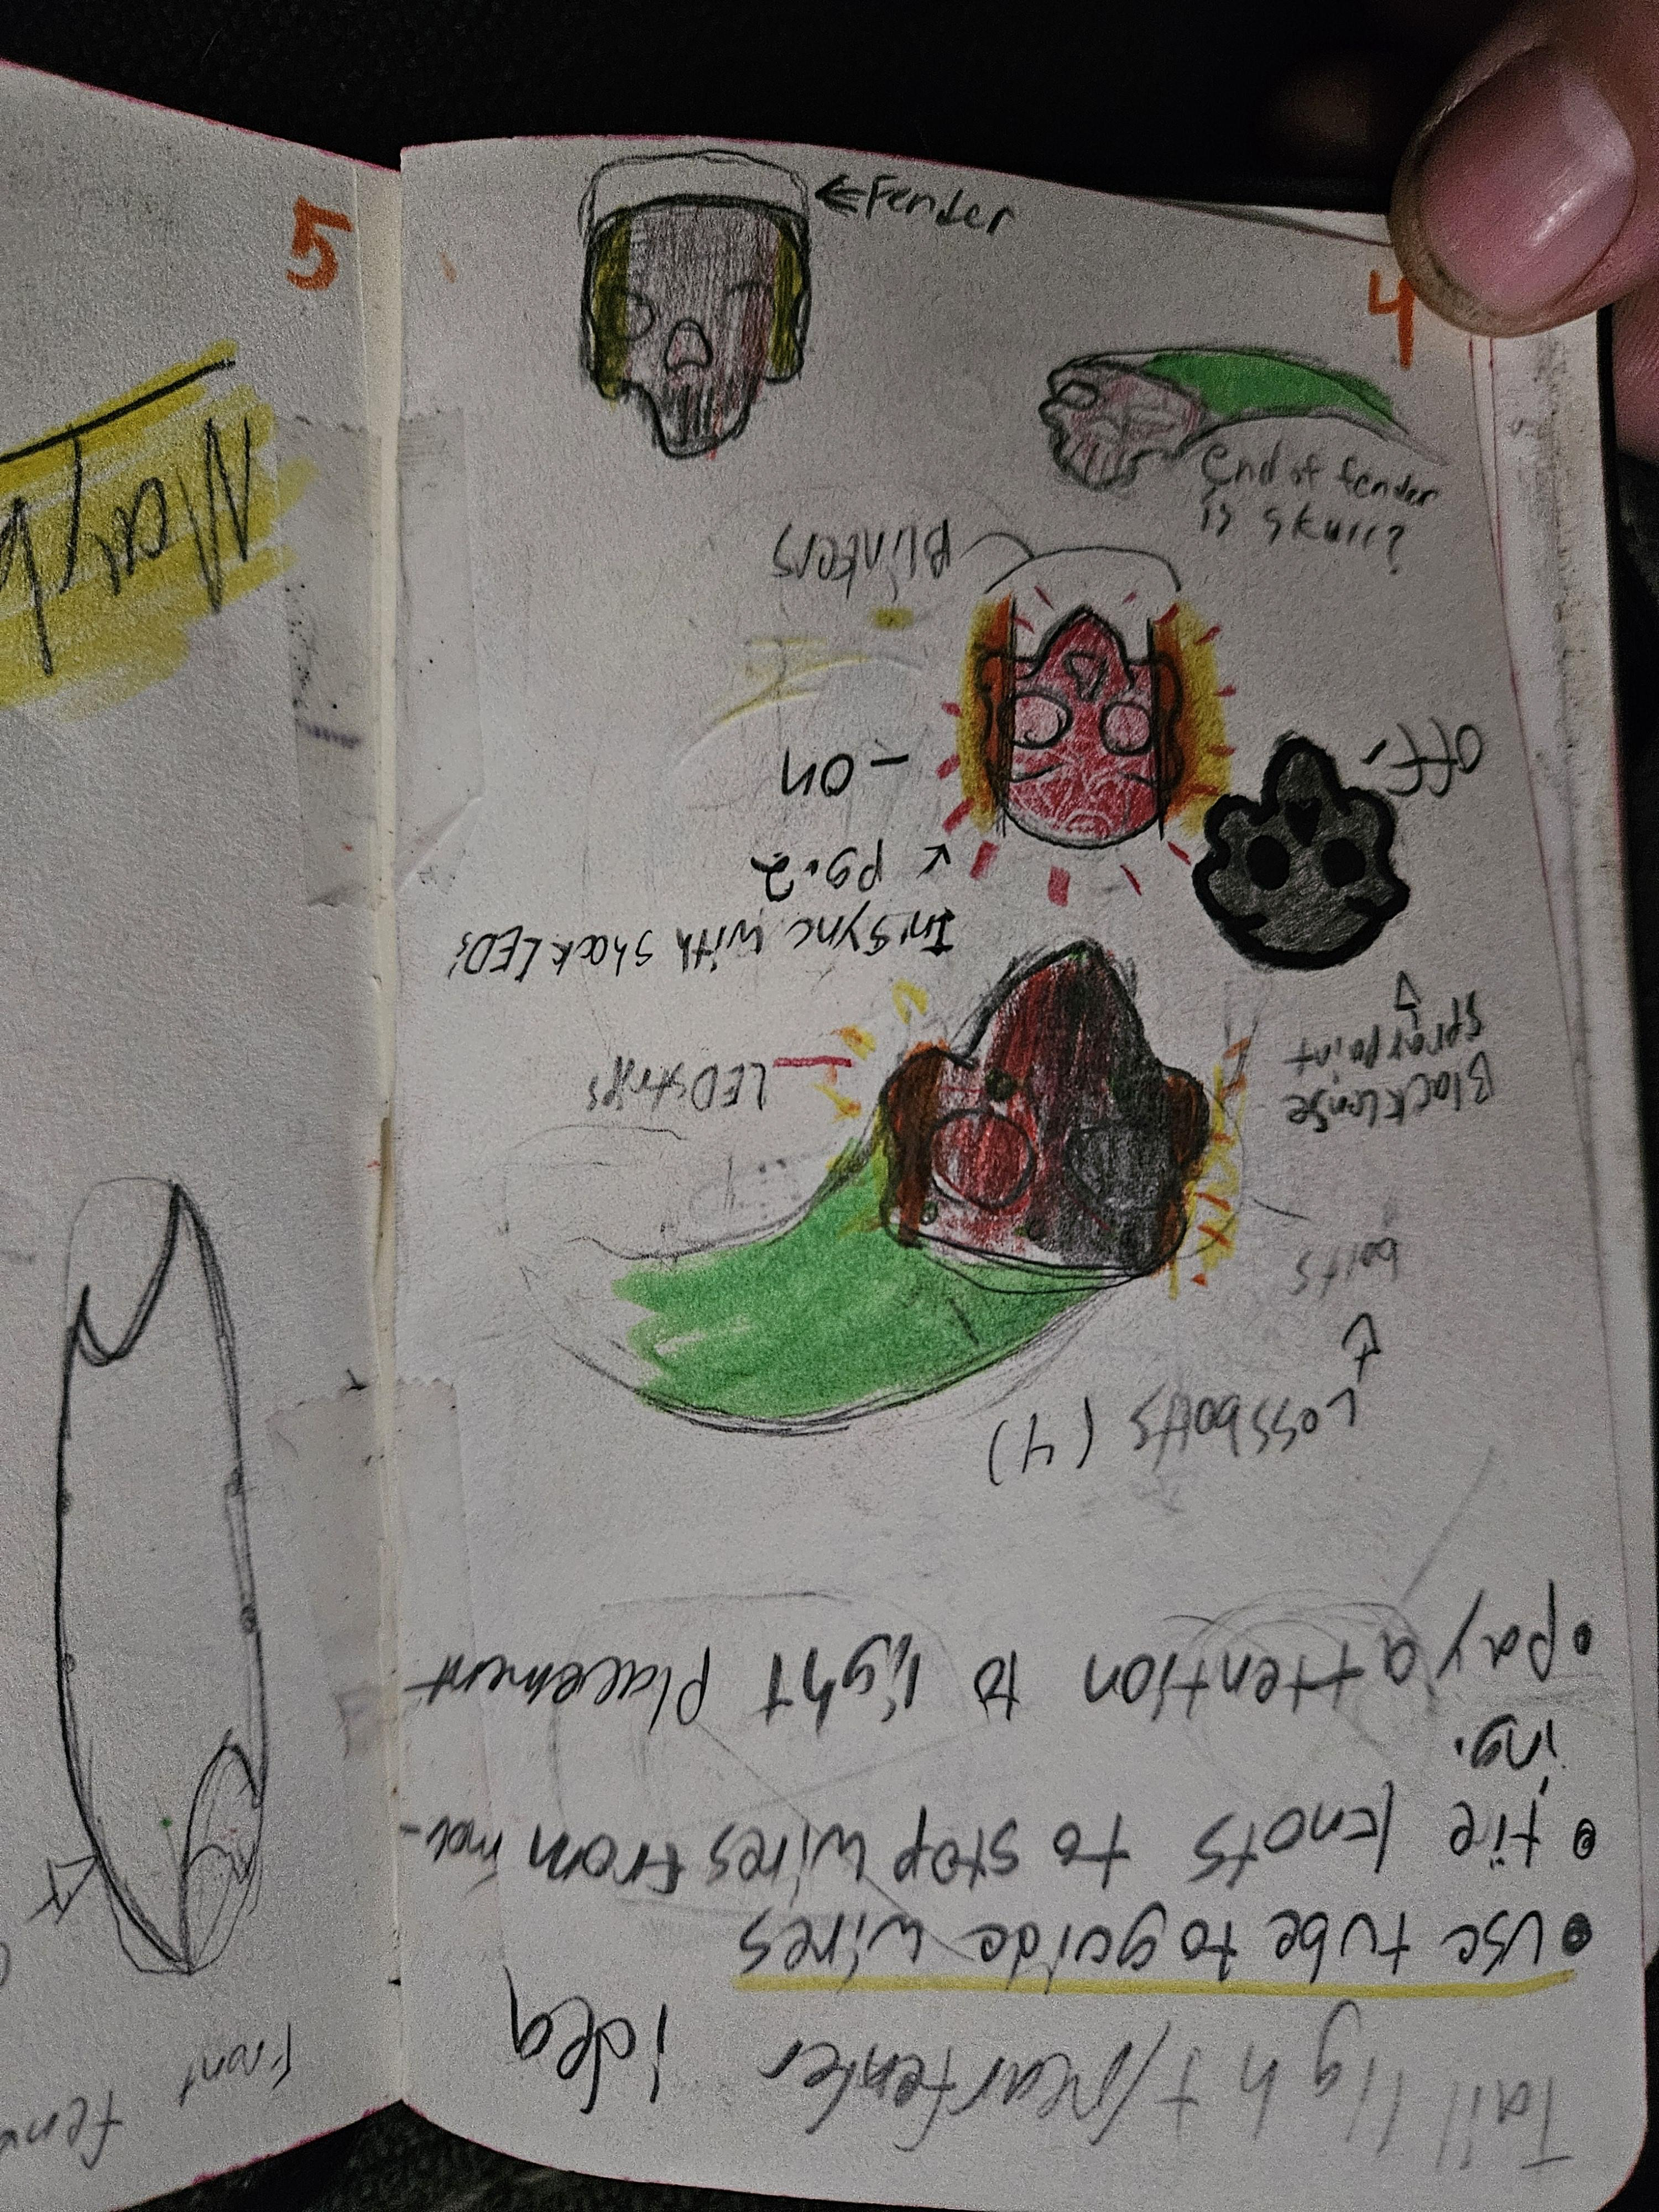 Tail light/rear fender idea
• use tube to guide wires
• tie knots to stop wires from mov-
ing.
• pay attention to light placement
Lossbolts (4)
bolts
LED strips
Black lense
spraypaint
In sync with shock LED's
pg. 2
- on
off.
Blinkers
Fender
End of fender
is skull?
4
5
Front